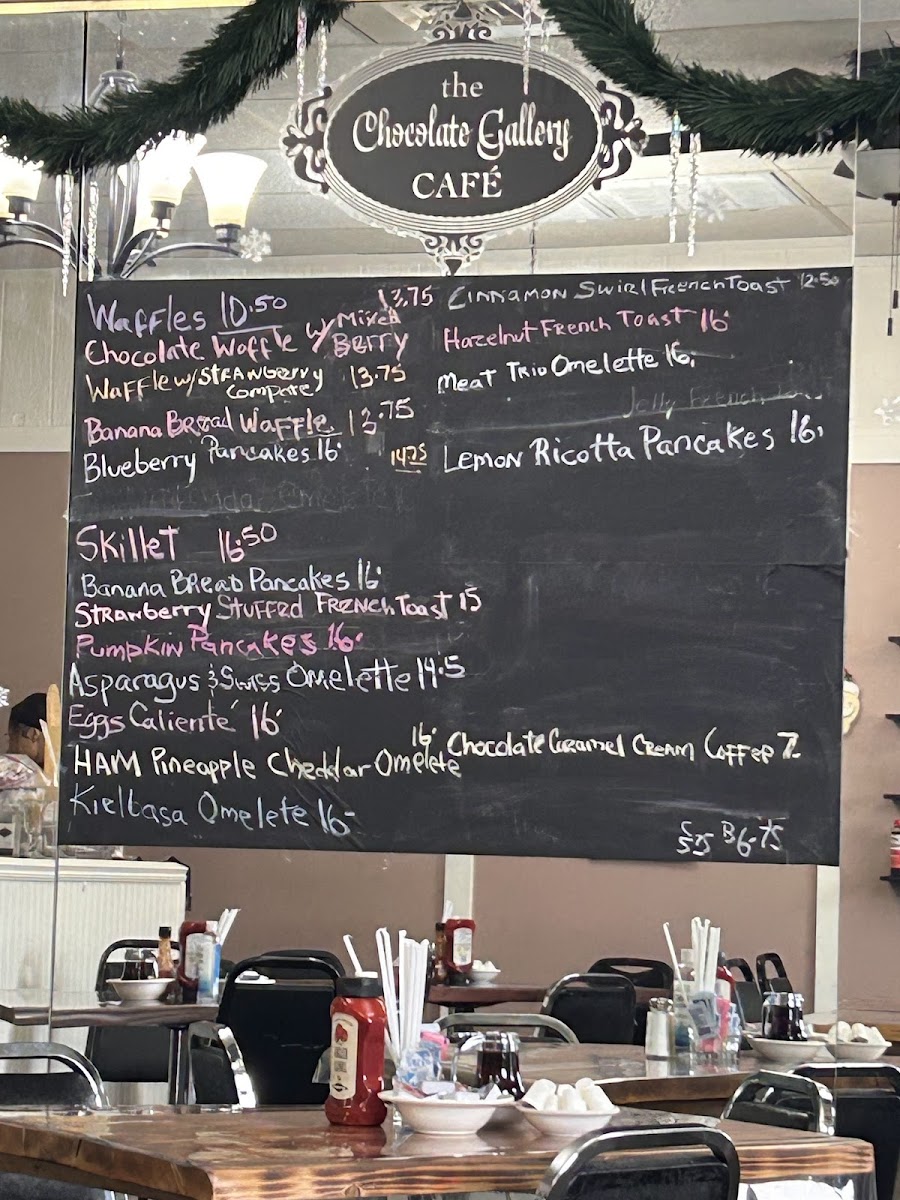 the
Chocolate Gallery
CAFÉ
Waffles 10.50
Chocolate Waffle w/ Mixed Berry 13.75
Waffle w/ STRAWBERRY Compote 13.75
Banana Bread Waffle 13.75
Blueberry Pancakes 16.
14.75
Skillet 16.50
Banana BReaD Pancakes 16.
STRAWberry Stuffed FRENCH Toast 15
Pumpkin Pancakes 16.
Asparagus & Swiss Omelette 14.5
Eggs Calienté 16.
HAM Pineapple Cheddar Omelete 16.
Kielbasa Omelete 16-
Cinnamon Swirl French Toast 12.50
Hazelnut French Toast 16.
Meat Trio Omelette 16.
Jelly French
Lemon Ricotta Pancakes 16.
Chocolate Caramel Cream Coffee 7.
S 5.75 B 6.75